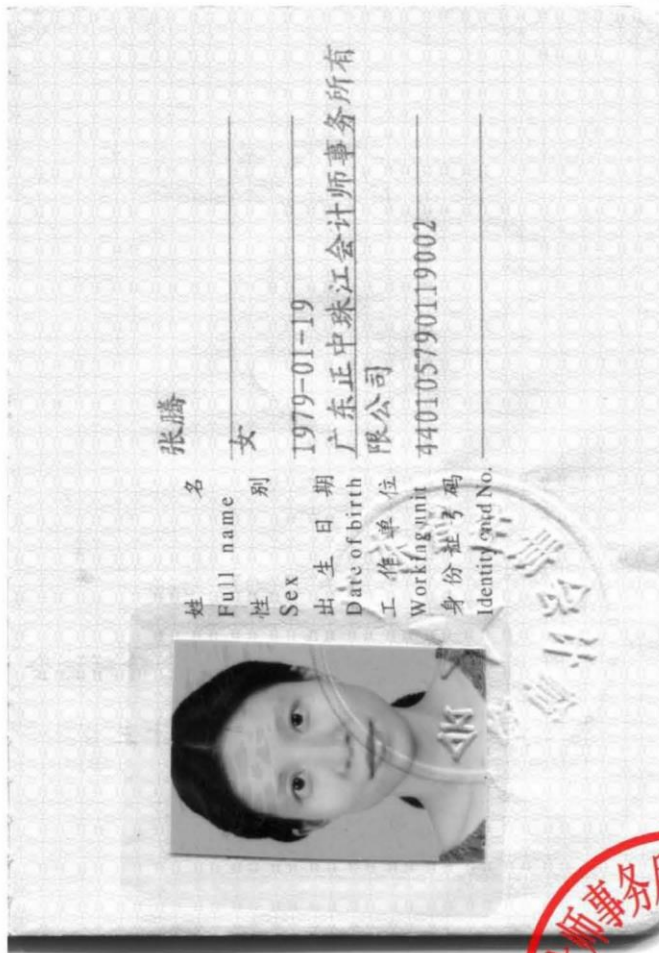 姓 名 张腾
Full name
性 别 女
Sex
出 生 日 期 1979-01-19
Date of birth
工 作 单 位 广东正中珠江会计师事务所有
Working unit 限公司
身 份 证 号 码 440105790119002
Identity card No.
师事务所